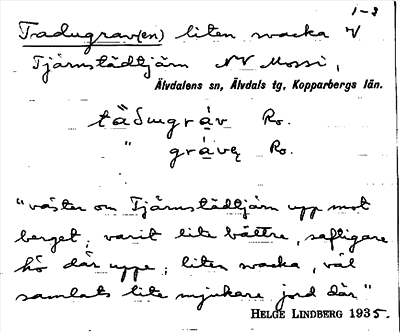 1-2
Tradugrav(en) liten wacka V
Tjärnstädtjärn NV Mossi,
Älvdalens sn, Älvdals tg, Kopparbergs län.
tä̀dugráv Ro.
" grávęn Ro.
"väster om Tjärnstädtjärn upp mot
berget; varit lite bättre, saftigare
hö där uppe; liten wacka, väl
samlats lite mjukare jord där"
HELGE LINDBERG 1935.